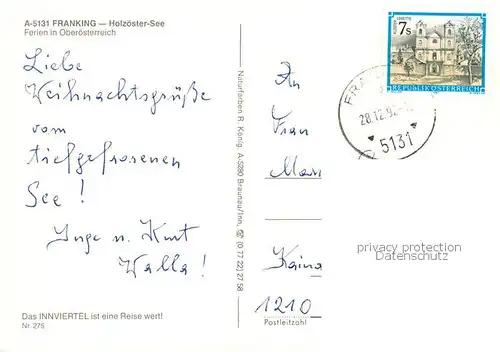 A-5131 FRANKING — Holzöster-See
Ferien in Oberösterreich
Liebe
Weihnachtsgrüße
vom
tiefgefrorenen
See!
Inge u. Kurt
Walla!
Das INNVIERTEL ist eine Reise wert!
Nr. 275
Naturfarben R. König, A-5280 Braunau/Inn, ☎ (0 77 22) 27 58
7s
REPUBLIK ÖSTERREICH
FRAN
28.12.9
5131
An
Frau
Mar
Kaina
1210
Postleitzahl
privacy protection
Datenschutz